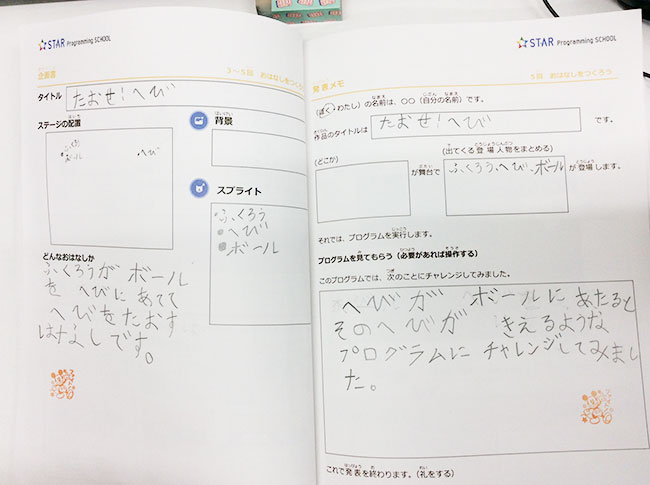 STAR Programming SCHOOL
企画書
3〜5回 おはなしをつくろう
タイトル
たおせ!へび
ステージの配置
ふくろう
ボール
へび
背景
スプライト
ふくろう
へび
ボール
どんなおはなしか
ふくろうがボール
をへびにあてて
へびをたおす
はなしです。
STAR Programming SCHOOL
発表メモ
5回 おはなしをつくろう
(ぼく・わたし)の名前は、○○(自分の名前)です。
作品のタイトルは たおせ!へび です。
(どこか)
(出てくる登場人物をまとめる)
が舞台で ふくろう、へび、ボール が登場します。
それでは、プログラムを実行します。
プログラムを見てもらう(必要があれば操作する)
このプログラムでは、次のことにチャレンジしてみました。
へびが ボールにあたると
そのへびが きえるような
プログラムにチャレンジしてみまし
た。
これで発表を終わります。(礼をする)